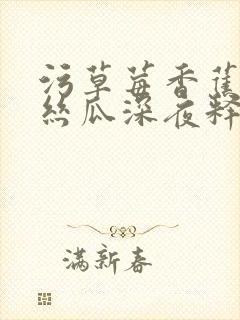 污草莓香蕉
丝瓜深夜释
满新春